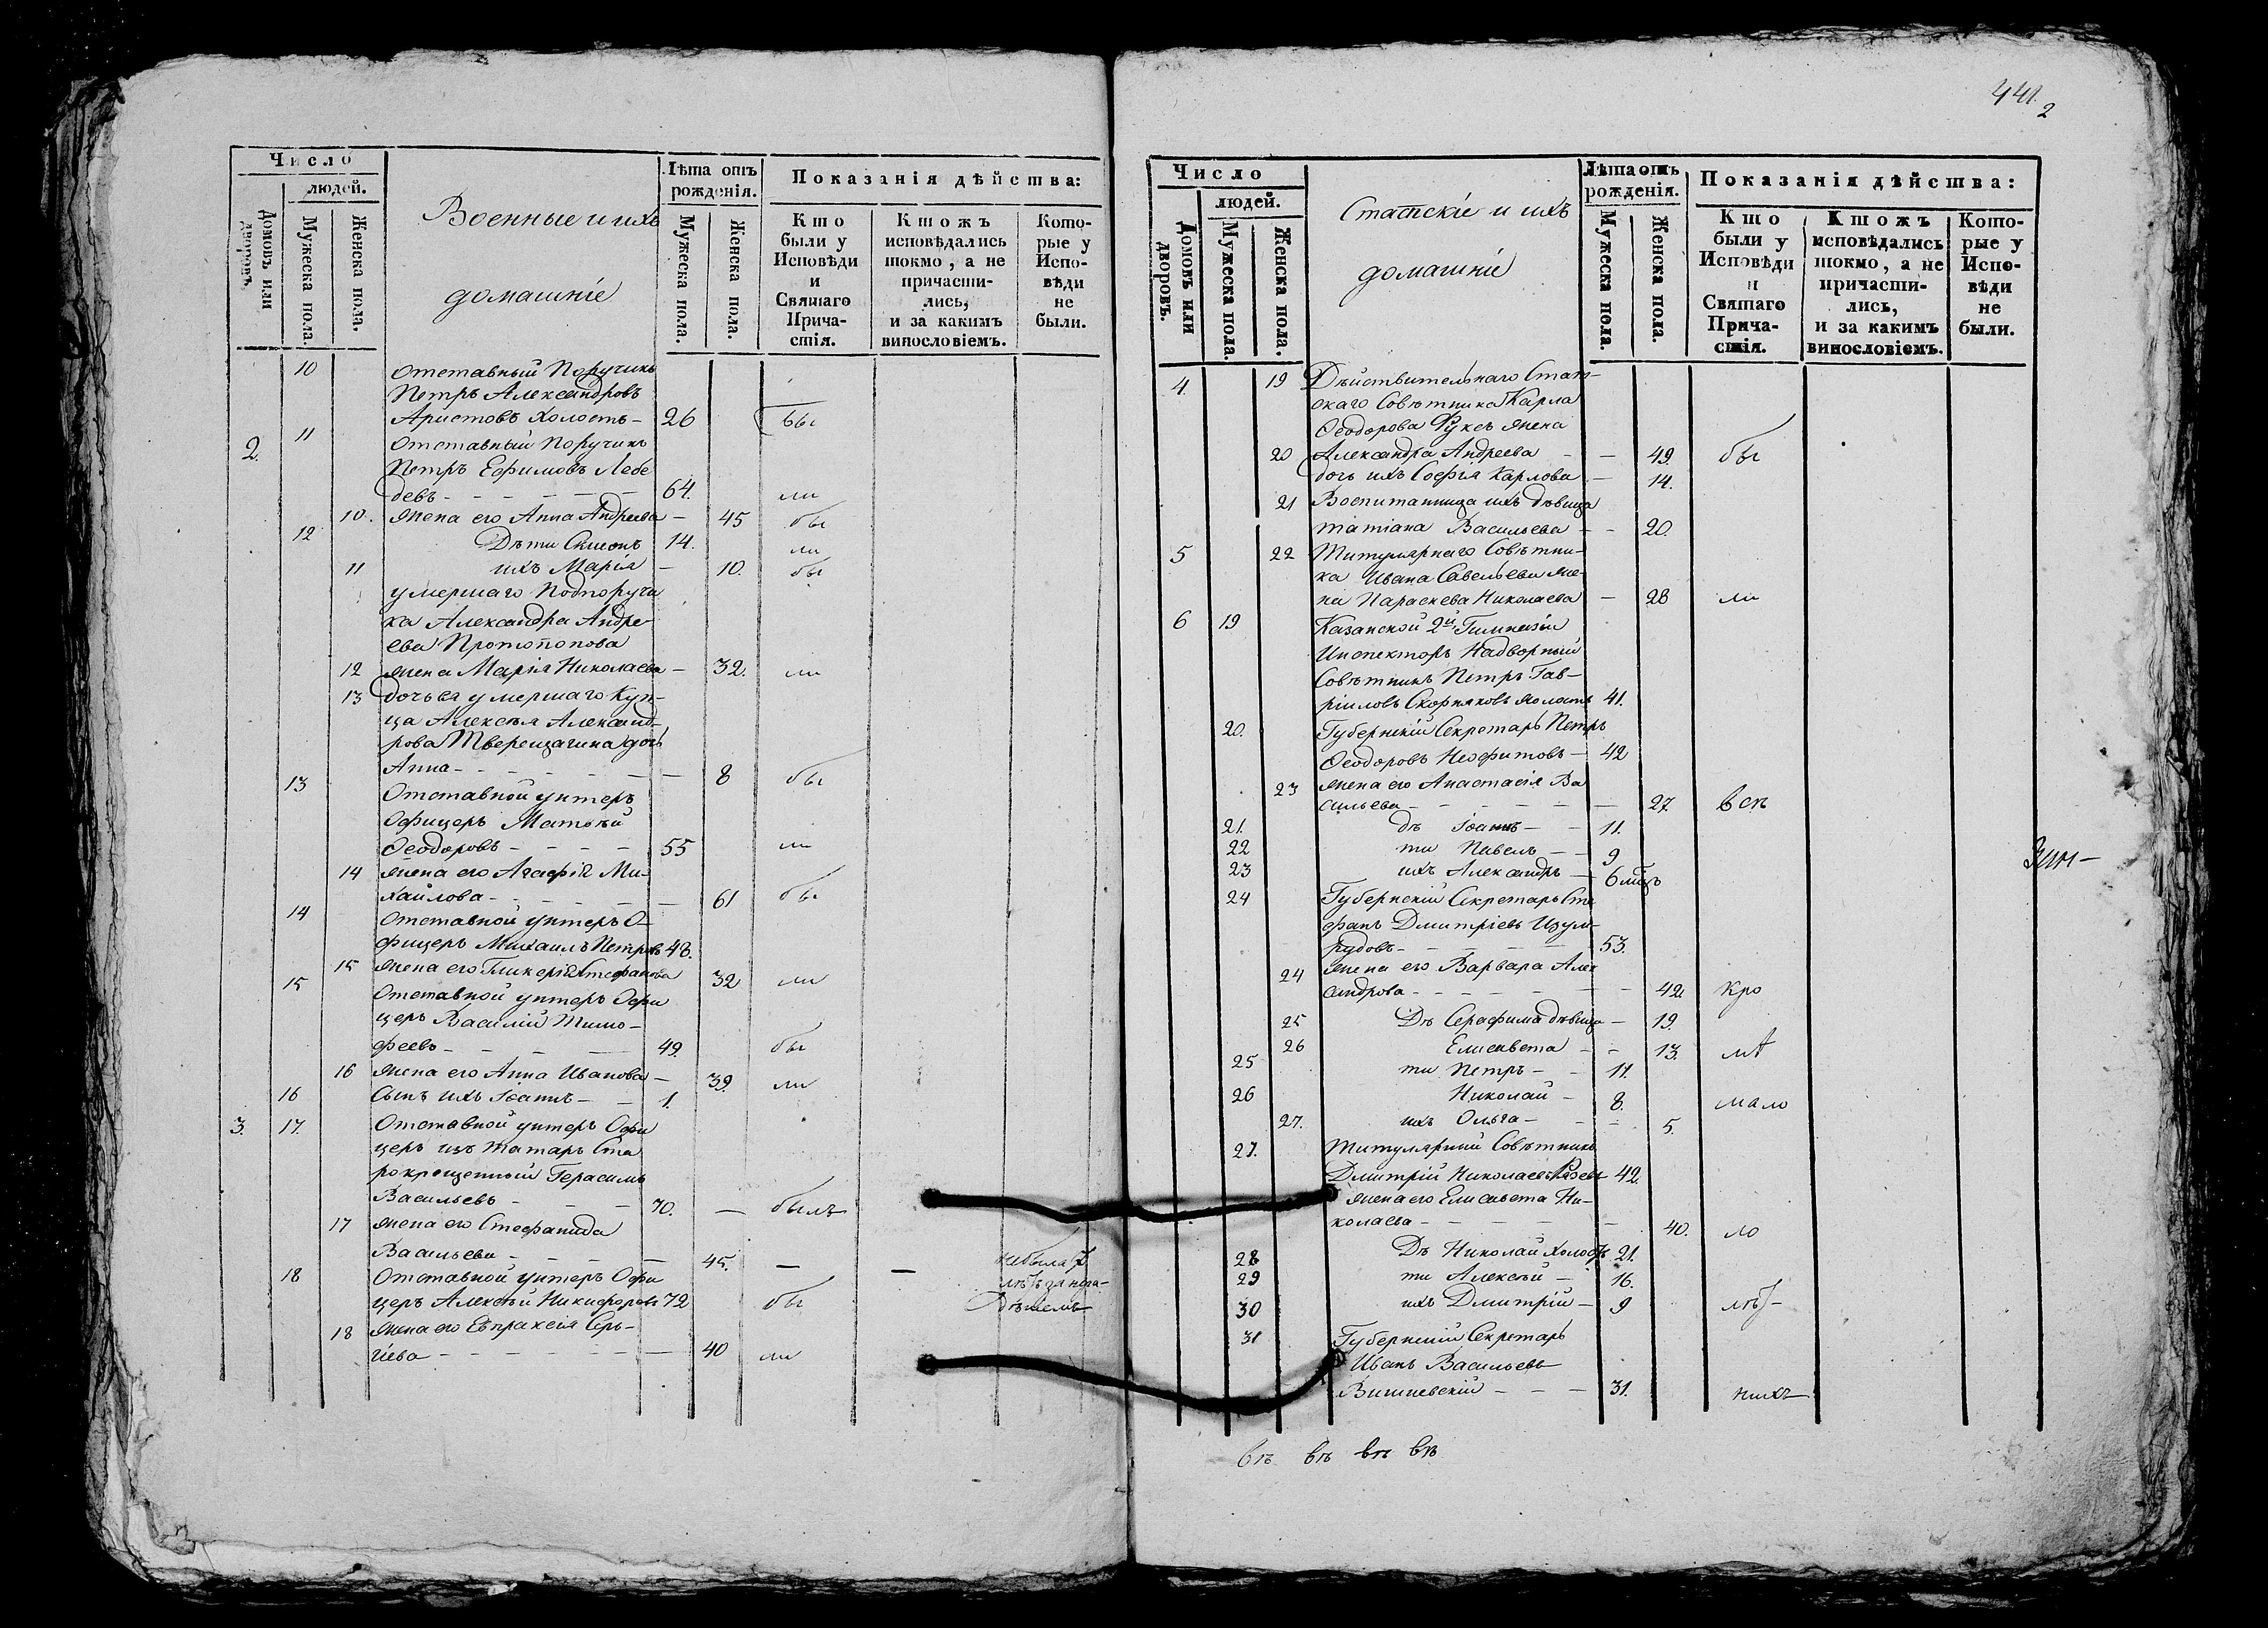 Число
людей.
Домовъ или дворовъ.
Мужеска пола.
Женска пола.
Военные и ихъ
домашніе
Лѣта отъ
рожденія.
Мужеска пола.
Женска пола.
Показанія дѣйства:
Кто
были у
Исповѣди
и
Святаго
Прича-
стія.
Ктожъ
исповѣдались
токмо, а не
причасти-
лись,
и за какимъ
винословіемъ.
Кото-
рые у
Испо-
вѣди
не
были.
10 Отставный Поручикъ
Петръ Александровъ
Аристовъ холостъ - 26 бы
2. 11 Отставный Поручикъ
Петръ Ефимовъ Лебе
девъ - - - - - 64. ли
10. жена его Анна Андреева - 45 бы
12 Дѣти Симеонъ 14. ли
11 ихъ Марія - 10. бы
умершаго Подпоручи
ка Александра Андре
ева Протопопова
12 жена Марія Николаева - 32. ли
13 дочь ея умершаго Куп-
ца Алексѣя Александ-
рова Тверещагина дочь
Анна - - - - - - 8 бы
13 Отставной унтеръ
Офицеръ Матвѣй
Ѳеодоровъ - - - - 55 ли
14 жена его Агафія Ми-
хайлова - - - - - 61 бы
14 Отставной унтеръ О-
фицеръ Михаилъ Петровъ 48.
15 жена его Гликерія Стефанова 32 ли
15 Отставной унтеръ Офи
церъ Василій Тимо-
феевъ - - - - 49. бы
16 жена его Анна Иванова - 39. ли
16 Сынъ ихъ Іоаннъ - - 1.
3. 17. Отставной унтеръ Офи
церъ изъ татаръ Ста
рокрещенный Герасимъ
Васильевъ - - - 70. - былъ
17 жена его Стефанида
Васильева - - - - 45. - - небыла
18 Отставной унтеръ Офи
церъ Алексѣй Никифоровъ 72 бы
18 жена его Евпраксія Сер-
гіева - - - - - - - 40 ли
441.
2
Число
людей.
Домовъ или дворовъ.
Мужеска пола.
Женска пола.
Статскіе и ихъ
домашніе
Лѣта отъ
рожденія.
Мужеска пола.
Женска пола.
Показанія дѣйства:
Кто
были у
Исповѣди
и
Святаго
Прича-
стія.
Ктожъ
исповѣдались
токмо, а не
причасти-
лись,
и за какимъ
винословіемъ.
Кото-
рые у
Испо-
вѣди
не
были.
4. 19 Дѣйствительнаго Стат-
скаго Совѣтника Карла
Ѳеодорова Фуксъ жена
20 Александра Андреева - - 49. бы
дочь ихъ Софія Карлова - 14.
21 Воспитанница ихъ дѣвица
Татіана Васильева - - 20.
5 22 Титулярнаго Совѣтни-
ка Ивана Савельева же-
на Параскева Николаева - 28 ли
6 19 Казанской 2й Гимназіи
Инспекторъ Надворный
Совѣтникъ Петръ Гав-
ріиловъ Скорняковъ холостъ 41.
20. Губернскій Секретарь Петръ
Ѳеодоровъ Неофитовъ - 42
23 жена его Анастасія Ва
сильева - - - - - - 27 всѣ
21. дѣ Іоаннъ - - 11.
22 ти Павелъ - - 9
23 ихъ Александръ - 6 мѣц
24 Губернскій Секретарь Сте
фанъ Дмитріевъ Изум-
рудовъ - - - - - 53.
24 жена его Варвара Алек
сандрова - - - - - - 42. кро
25 Дѣ Серафима дѣвица - 19.
26 Елисавета - - 13. мѣ
25 ти Петръ - - 11.
26 Николай - 8. мало
27. ихъ Ольга - - - 5.
27. Титулярный Совѣтникъ
Дмитрій Николаевъ 42.
жена его Елисавета Ни-
колаева - - - - - - 40. ло
28 Дѣ Николай холостъ 21.
29 ти Алексѣй - 16.
30 ихъ Дмитрій - 9 лѣт-
31 Губернскій Секретарь
Иванъ Васильевъ
Вишневскій - - - 31. нихъ
въ въ въ въ